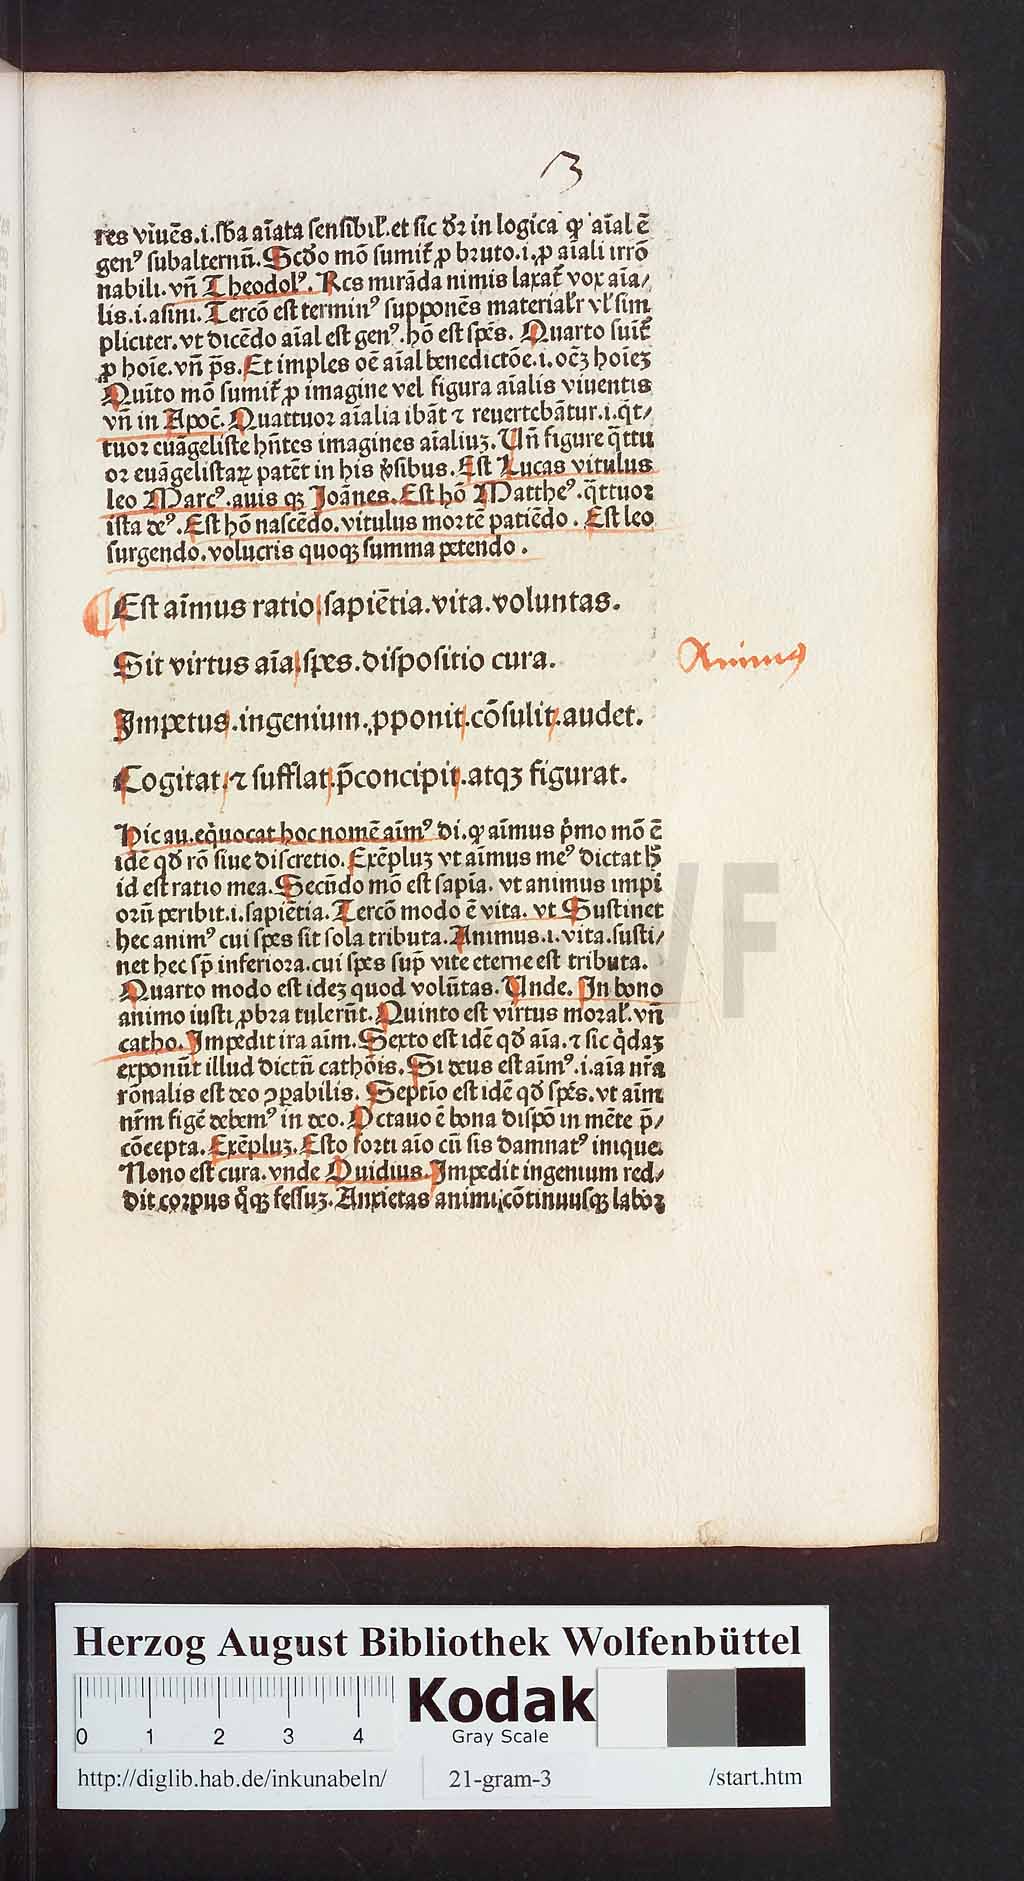 13
res viuēs.i.sb̄a aīata sensibil'.et sic dr̄ in logica ꝙ aīal ē
genꝰ subalternū. Scd̄o mō sumit᷑ ꝓ bruto.i.ꝓ aīali irrō
nabili.vn̄ Theodolꝰ. Res mirāda nimis laxat᷑ vox aīa/
lis.i.asini. Tercō est terminꝰ supponēs material'r vl' sim
pliciter.vt dicēdo aīal est genꝰ.hō est spēs. Quarto suit᷑
ꝓ hoīe.vn̄ p̄s. Et imples oē aīal benedictōe.i.oēꝫ hoīeꝫ
Quīto mō sumit᷑ ꝓ imagine vel figura aīalis viuentis
vn̄ in Apoc̄. Quattuor aīalia ibāt ⁊ reuertebātur.i.q̄t/
tuor euāgeliste hn̄tes imagines aīaliuꝫ. Un̄ figure q̄ttu
or euāgelistaꝝ patēt in his v̓sibus. Est Lucas vitulus
leo Marcꝰ.auis qꝫ Joānes. Est hō Mattheꝰ.q̄ttuor
ista deꝰ. Est hō nascēdo.vitulus mortē patiēdo. Est leo
surgendo.volucris quoqꝫ summa petendo.
Est aīmus ratio.sapiētia.vita.voluntas.
Sit virtus aīa.spes.dispositio cura.
Animꝰ
Impetus.ingenium.ꝓponit.cōsulit.audet.
Cogitat.⁊ sufflat.p̄concipit.atqꝫ figurat.
Hic au.eq̓uocat hoc nomē aīmꝰ di.ꝙ aīmus p̓mo mō ē
idē qd̄ rō siue discretio. Exēpluꝫ vt aīmus meꝰ dictat h̄
id est ratio mea. Secūdo mō est sapīa. vt animus impi
orū peribit.i.sapiētia. Tercō modo ē vita. vt Sustinet
hec animꝰ cui spes sit sola tributa. Animus.i.vita.susti/
net hec sp̄ inferiora.cui spes sup̄ vite eterne est tributa.
Quarto modo est ideꝫ quod volūtas. Unde. In bono
animo iusti ꝓbra tulerūt. Quinto est virtus moral'. vn̄
catho. Impedit ira aīm. Sexto est idē qd̄ aīa.⁊ sic q̓daꝫ
exponūt illud dictū cathōis. Si deus est aīmꝰ.i.aīa nr̄a
rōnalis est deo ꝯꝑabilis. Septīo est idē qd̄ spēs. vt aīm
nr̄m figē debemꝰ in deo. Octauo ē bona dispō in mēte p̄/
cōcepta. Exēpluꝫ. Esto forti aīo cū sis damnatꝰ inique.
Nono est cura. vnde Ouidius. Impedit ingenium red/
dit corpus q̊qꝫ fessuꝫ. Anxietas animi.cōtinuusqꝫ labor
Herzog August Bibliothek Wolfenbüttel
0 1 2 3 4
Kodak
Gray Scale
http://diglib.hab.de/inkunabeln/ 21-gram-3 /start.htm